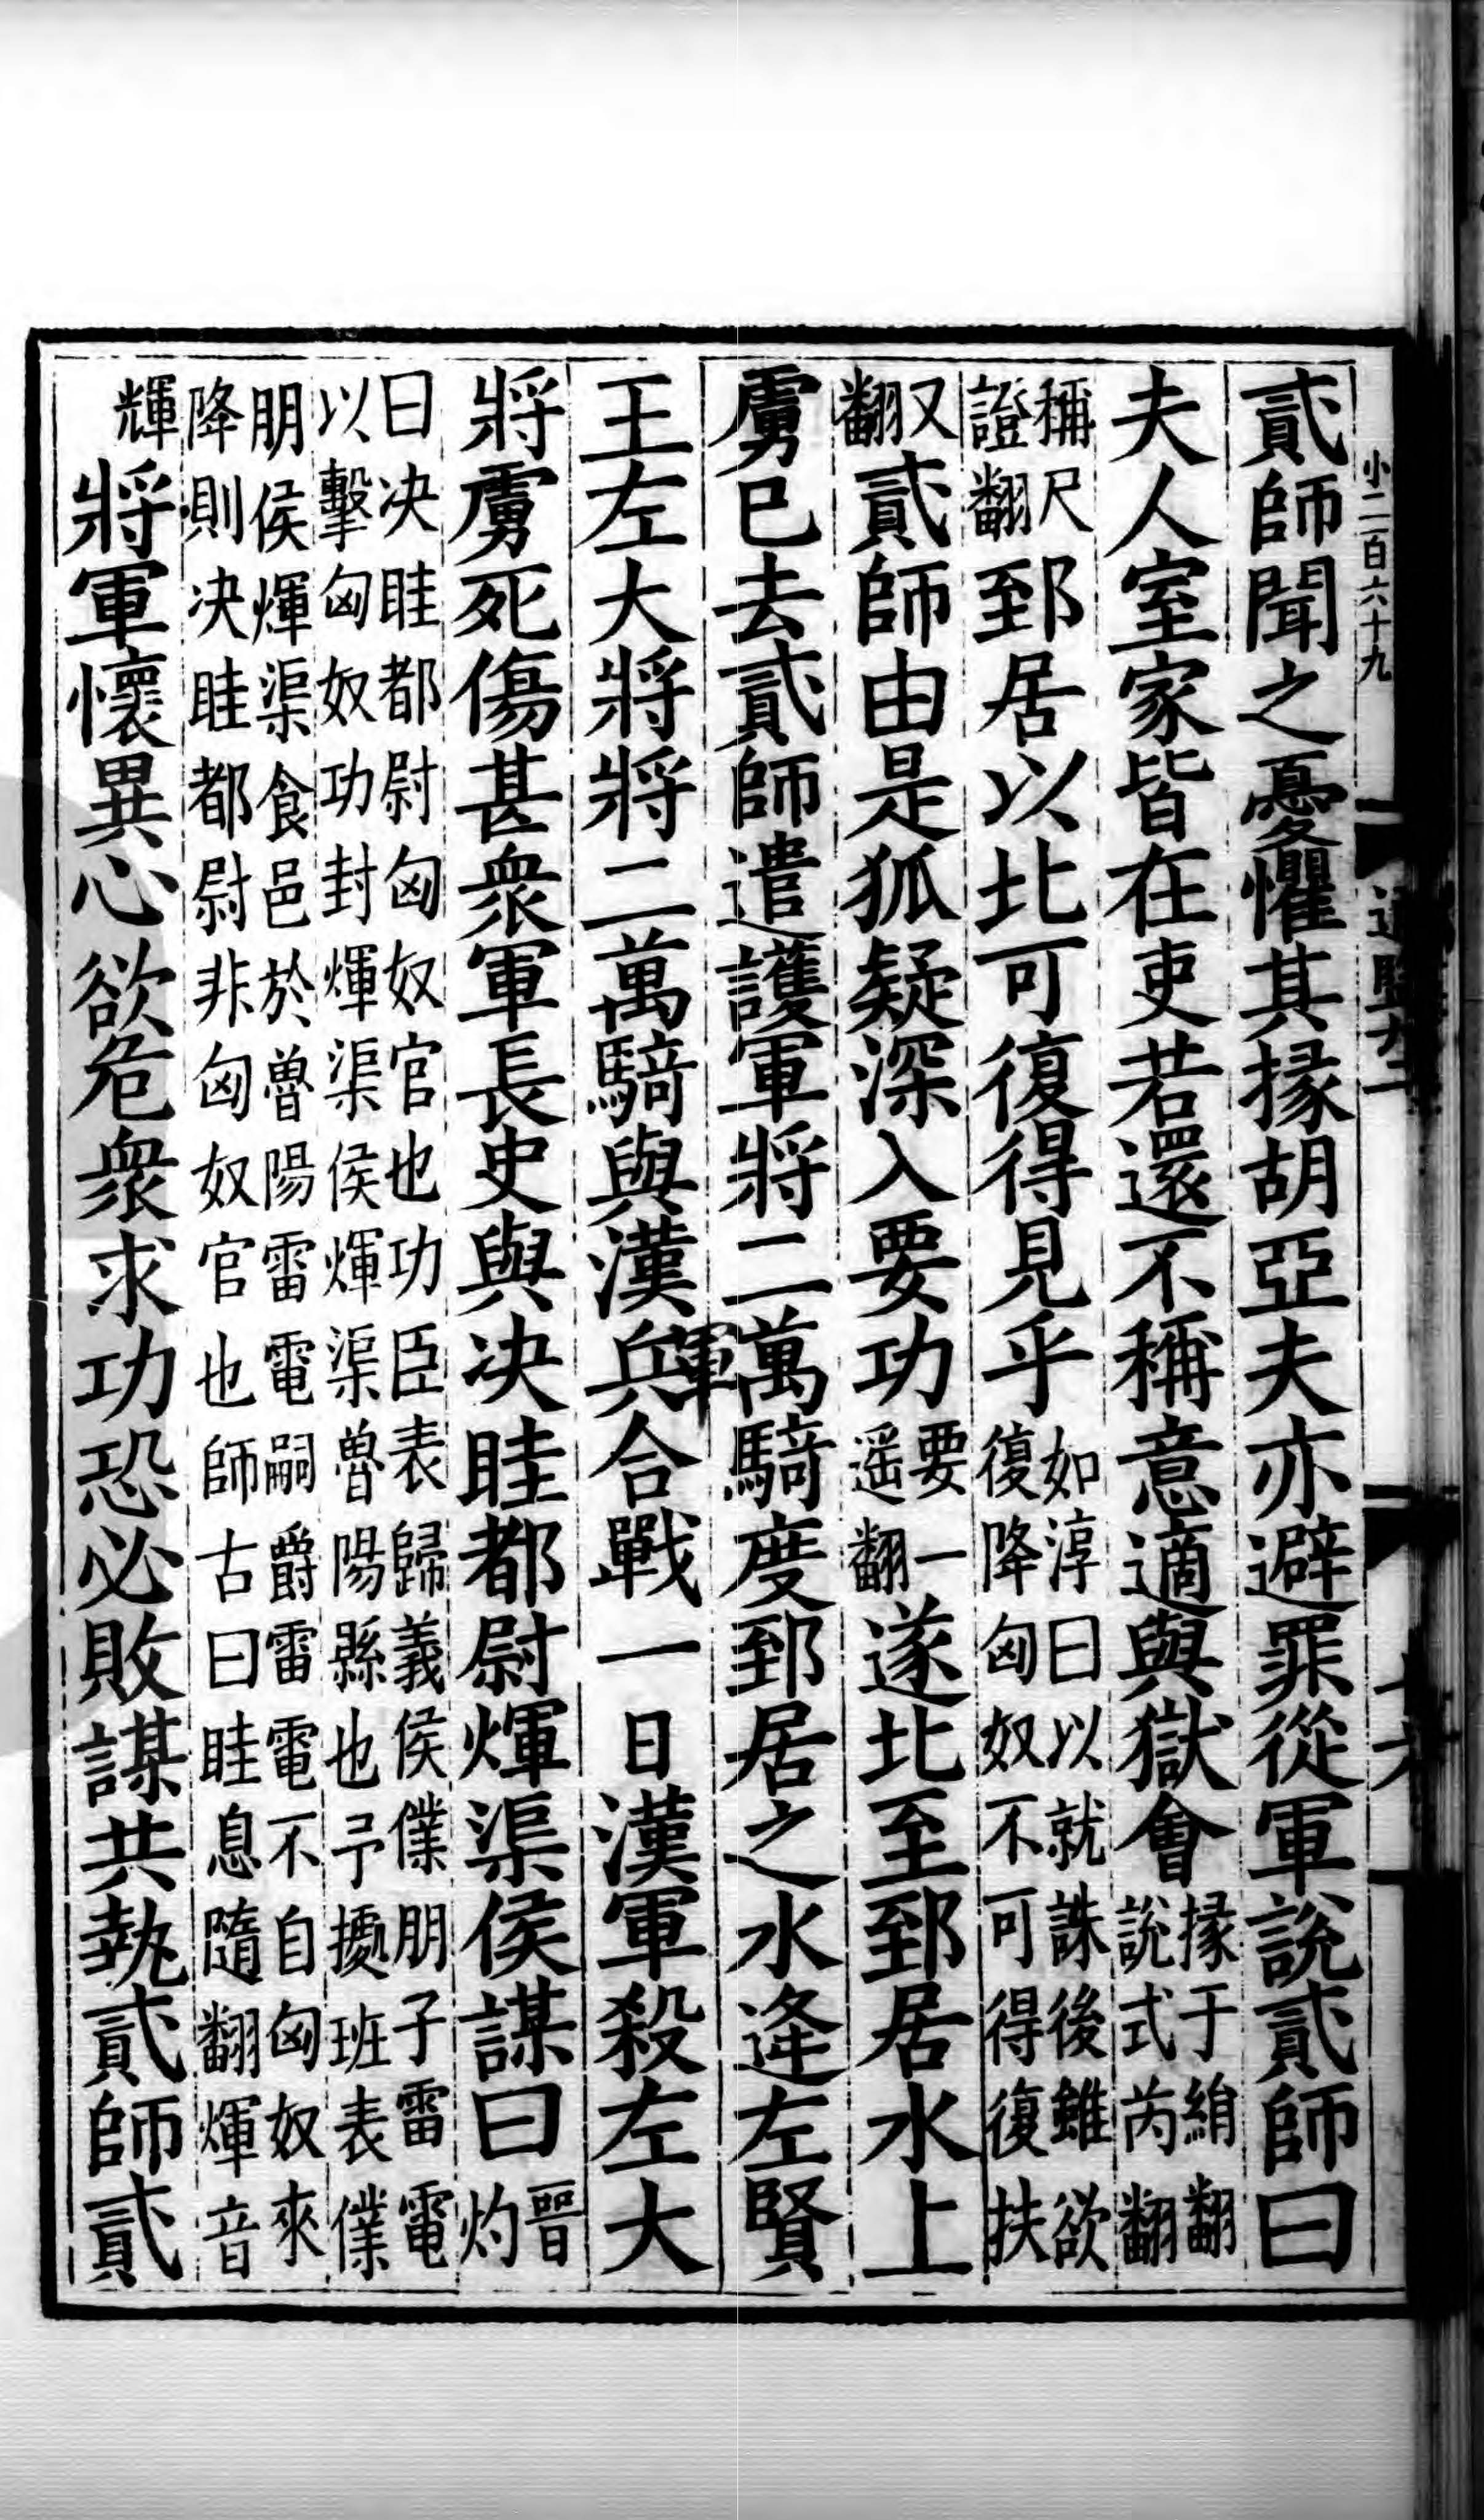 小二百六十九
貳師聞之憂懼其掾胡亞夫亦避罪從軍說貳師曰
夫人室家皆在吏若還不稱意適與獄會掾于絹翻說式芮翻
稱尺證翻郅居以北可復得見乎如淳曰以就誅後雖欲復降匈奴不可得復扶
又翻貳師由是狐疑深入要功要一遥翻遂北至郅居水上
虜已去貳師遣護軍將二萬騎度郅居之水逢左賢
王左大將將二萬騎與漢兵軍合戰一日漢軍殺左大
將虜死傷甚衆軍長史與决眭都尉煇渠侯謀曰晉灼
曰决眭都尉匈奴官也功臣表歸義侯僕朋子雷電以擊匈奴功封煇渠侯煇渠魯陽縣也予據班表僕
朋侯煇渠食邑於魯陽雷電嗣爵雷電不自匈奴來降則决眭都尉非匈奴官也師古曰眭息隨翻煇音
輝將軍懷異心欲危衆求功恐必敗謀共執貳師貳